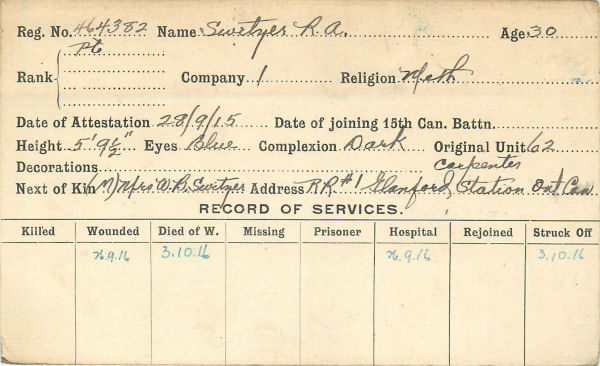 Reg. No. 464382 Name Switzer R. A. Age 30
Rank Pte Company 1 Religion Meth
Date of Attestation 28/9/15 Date of joining 15th Can. Battn.
Height 5' 9½" Eyes Blue Complexion Dark Original Unit 62
Decorations carpenter
Next of Kin (M) Mrs W. B. Switzer Address R.R. #1 Glanford Station Ont Can
RECORD OF SERVICES.
Killed Wounded Died of W. Missing Prisoner Hospital Rejoined Struck Off
26.9.16 3.10.16 26.9.16 3.10.16